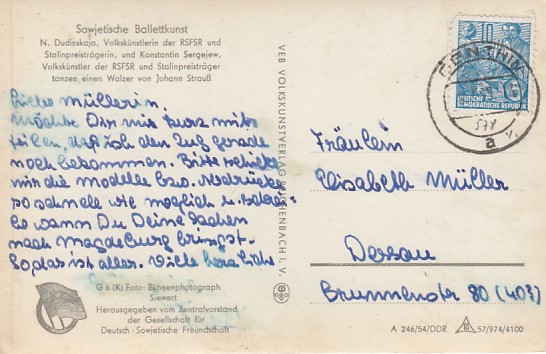 Sowjetische Ballettkunst
N. Dudinskaja, Volkskünstlerin der RSFSR und
Stalinpreisträgerin, und Konstantin Sergejew,
Volkskünstler der RSFSR und Stalinpreisträger
tanzen einen Walzer von Johann Strauß
Liebe Müllerin,
Möchte Dir nur kurz mit=
teilen, daß ich den Zug gerade
noch bekommen. Bitte schicke
mir die Modelle bzw.
so schnell wie möglich u.
be wann Du Deine Sachen
nach Magdeburg bringst.
So das ist alles. Viele herzliche
G 6 (K) Foto: Bühnenphotograph
Siewert
Herausgegeben vom Zentralvorstand
der Gesellschaft für
Deutsch-Sowjetische Freundschaft
VEB VOLKSKUNSTVERLAG REICHENBACH I. V.
10
DEUTSCHE
DEMOKRATISCHE REPUBLIK
GENTHIN
a
Fräulein
Elisabeth Müller
Dessau
Brunnenstr 80 (403)
A 246/54/DDR
57/974/4100